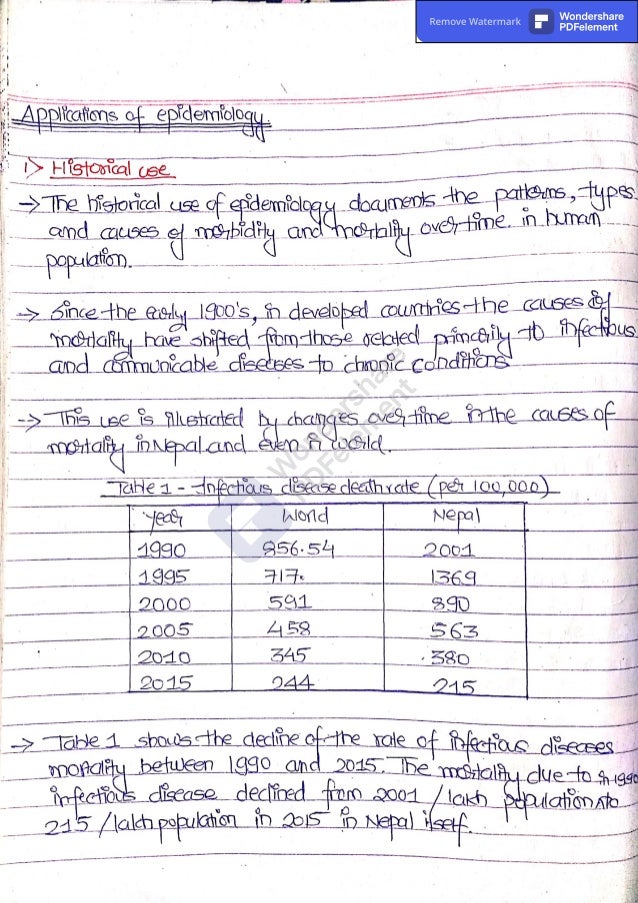 Remove Watermark
Wondershare
PDFelement
Applications of epidemiology.
1> Historical use
→ The historical use of epidemiology documents the patterns, types
and causes of morbidity and mortality over time. in human
population.
→ Since the early 1900's, in developed countries the causes of
mortality have shifted from those related primarily to infectious
and communicable diseases to chronic conditions
→ This use is illustrated by changes over time in the causes of
mortality in Nepal and even in world.
Wondershare
PDFelement
Table 1 - Infectious disease death rate (per 100,000)
Year World Nepal
1990 856.54 2001
1995 717. 1369
2000 591 890
2005 458 563
2010 345 380
2015 244 215
→ Table 1 shows the decline of the rate of infectious diseases
mortality between 1990 and 2015. The mortality due to in 1990
infectious disease declined from 2001 / lakh population to
215 / lakh population in 2015 in Nepal itself.